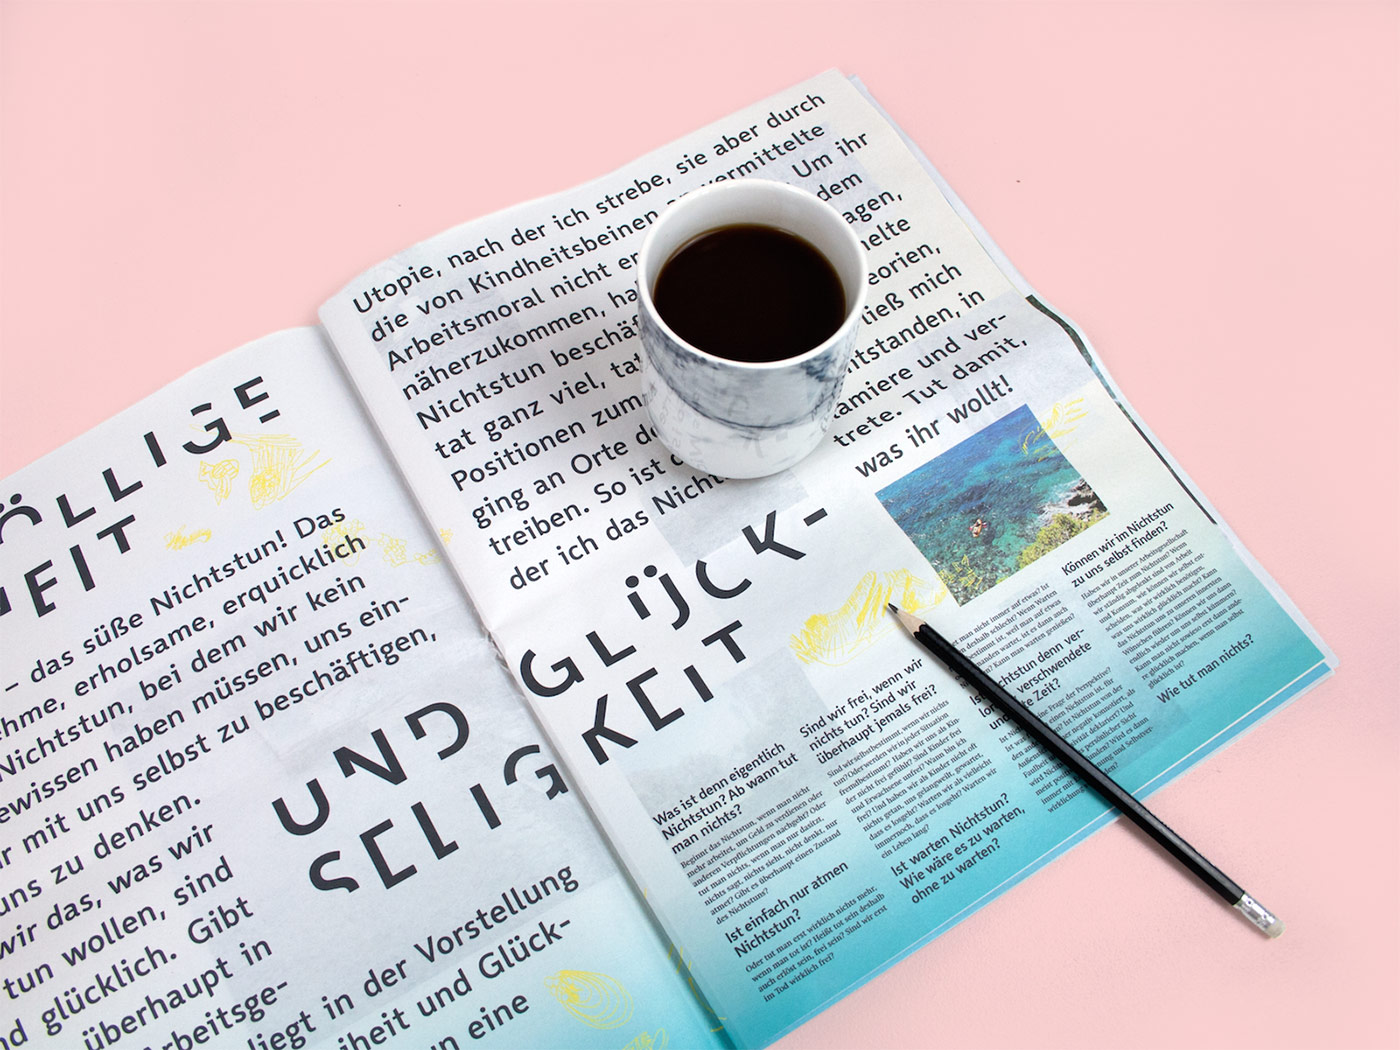 ÖLLIGE
HEIT
– das süße Nichtstun! Das
ehme, erholsame, erquicklich
Nichtstun, bei dem wir kein
ewissen haben müssen, uns ein-
r mit uns selbst zu beschäftigen,
uns zu denken.
wir das, was wir
tun wollen, sind
nd glücklich. Gibt
überhaupt in
Arbeitsge-
UND
SELIG
liegt in der Vorstellung
iheit und Glück-
n eine
Utopie, nach der ich strebe, sie aber durch
die von Kindheitsbeinen an vermittelte
Arbeitsmoral nicht er Um ihr
näherzukommen, ha dem
Nichtstun beschäf agen,
tat ganz viel, tat melte
Positionen zum eorien,
ging an Orte de ließ mich
treiben. So ist entstanden, in
der ich das Nicht amiere und ver-
trete. Tut damit,
was ihr wollt!
GLÜCK-
KEIT
Was ist denn eigentlich
Nichtstun? Ab wann tut
man nichts?
Beginnt das Nichtstun, wenn man nicht
mehr arbeitet, um Geld zu verdienen oder
anderen Verpflichtungen nachgeht? Oder
tut man nichts, wenn man nur dasitzt,
nichts sagt, nichts sieht, nicht denkt, nur
atmet? Gibt es überhaupt einen Zustand
des Nichtstuns?
Ist einfach nur atmen
Nichtstun?
Oder tut man erst wirklich nichts mehr,
wenn man tot ist? Heißt tot sein deshalb
auch erlöst sein, frei sein? Sind wir erst
im Tod wirklich frei?
Sind wir frei, wenn wir
nichts tun? Sind wir
überhaupt jemals frei?
Sind wir selbstbestimmt, wenn wir nichts
tun? Oder werden wir in jeder Situation
fremdbestimmt? Haben wir uns als Kin-
der nicht frei gefühlt? Sind Kinder frei
und Erwachsene unfrei? Wann bin ich
frei? Und haben wir als Kinder nicht oft
nichts getan, uns gelangweilt, gewartet,
dass es losgeht? Warten wir als vielleicht
immernoch, dass es losgeht? Warten wir
ein Leben lang?
Ist warten Nichtstun?
Wie wäre es zu warten,
ohne zu warten?
man nicht immer auf etwas? Ist
n deshalb schlecht? Wenn Warten
bestimmt ist, weil man auf etwas
anden wartet, ist es dann auch
Kann man warten genießen?
Nichtstun denn ver-
verschwendete
Zeit?
eine Frage der Perspektive?
einen Nichtstun ist, für
Ist Nichtstun von der
er negativ konnotiert, als
Faulheit deklariert? Und
wird persönlicher Sicht
Wird es dann
immer mit und Selbstver-
wirklichung
Können wir im Nichtstun
zu uns selbst finden?
Haben wir in unserer Arbeitsgesellschaft
überhaupt Zeit zum Nichtstun? Wenn
wir ständig abgelenkt sind von Arbeit
und Konsum, wie können wir selbst ent-
scheiden, was wir wirklich benötigen,
was uns wirklich glücklich macht? Kann
das Nichtstun uns zu unseren innersten
Wünschen führen? Können wir uns dann
endlich wieder um uns selbst kümmern?
Kann man nicht sowieso erst dann ande-
re glücklich machen, wenn man selbst
glücklich ist?
Wie tut man nichts?